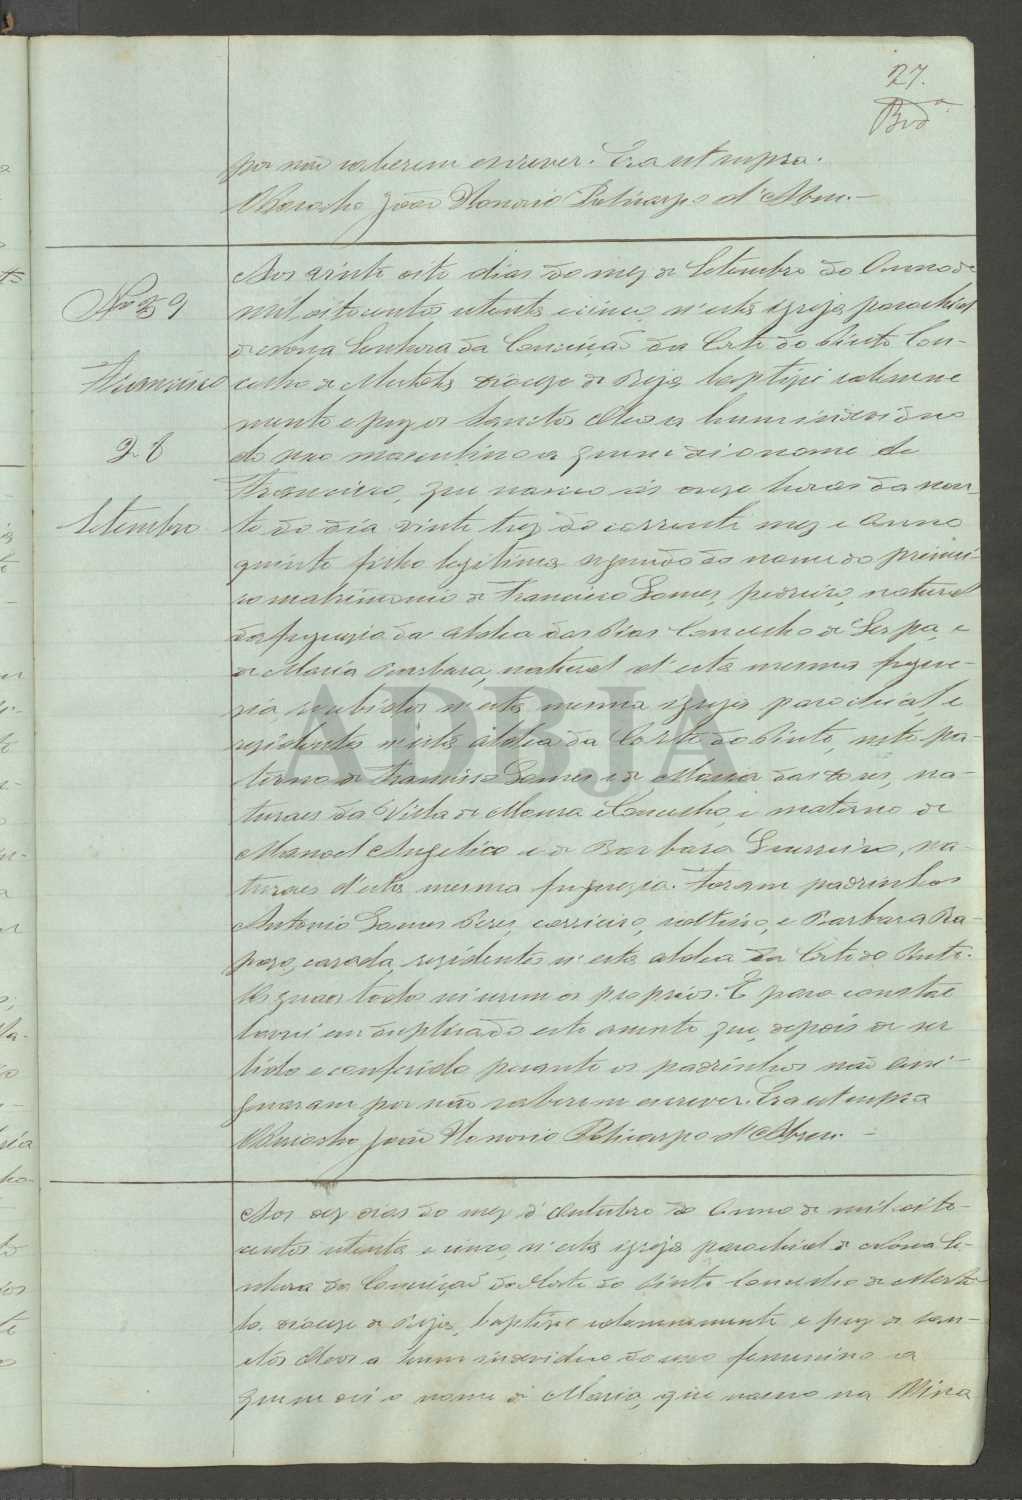 27.
por não saberem escrever. Era ut supra.
O Parocho João Honorio Policarpo d'Abreu.—
Nº 59
Francisco
28
Setembro
Aos vinte oito dias do mez de Setembro do Anno de
mil oitocentos setenta e cinco, n'esta igreja parochial
de Nossa Senhora da Conceição da Corte do Pinto Con-
celho de Mertola diocese de Beja baptizei solemne
mente e puz os Sanctos Oleos a hum individuo
do sexo masculino a quem dei o nome de
Francisco, que nasceo ás onze horas da nou-
te do dia vinte trez do corrente mez e Anno
quinto filho legitimo segundo do nome do primei-
ro matrimonio de Francisco Gomes, pedreiro, natural
da freguezia da Aldea dos Pias Concelho de Serpa, e
de Maria Barbara, natural d'esta mesma fregue-
zia, recebidos n'esta mesma igreja parochial, e
rezidentes n'esta aldea da Corte do Pinto, neto pa-
terno de Francisco Gomes e de Maria das Dores, na-
turaes da Villa de Moura e Concelho, e materno de
Manoel Angelico e de Barbara Guerreiro, na-
turaes d'esta mesma freguezia. Foram padrinhos
Antonio Gomes Peres, carreiro, solteiro, e Barbara Ra-
pozo, casada, rezidentes n'esta aldea da Corte do Pinto.
Os quaes todos serem os proprios. E para constar
lavrei em duplicado este assento que, depois de ser
lido e conferido perante os padrinhos não assi-
gnaram por não saberem escrever. Era ut supra
O Parocho João Honorio Policarpo d'Abreu. —
Aos dez dias do mez d'Outubro do Anno de mil oito-
centos setenta e cinco, n'esta igreja parochial de Nossa Se-
nhora da Conceição da Corte do Pinto Concelho de Merto-
la, diocese de Beja, baptizei solemnemente e puz os san-
ctos Oleos a hum individuo do sexo femenino a
quem dei o nome de Maria, que nasceo na Mina
ADBJA